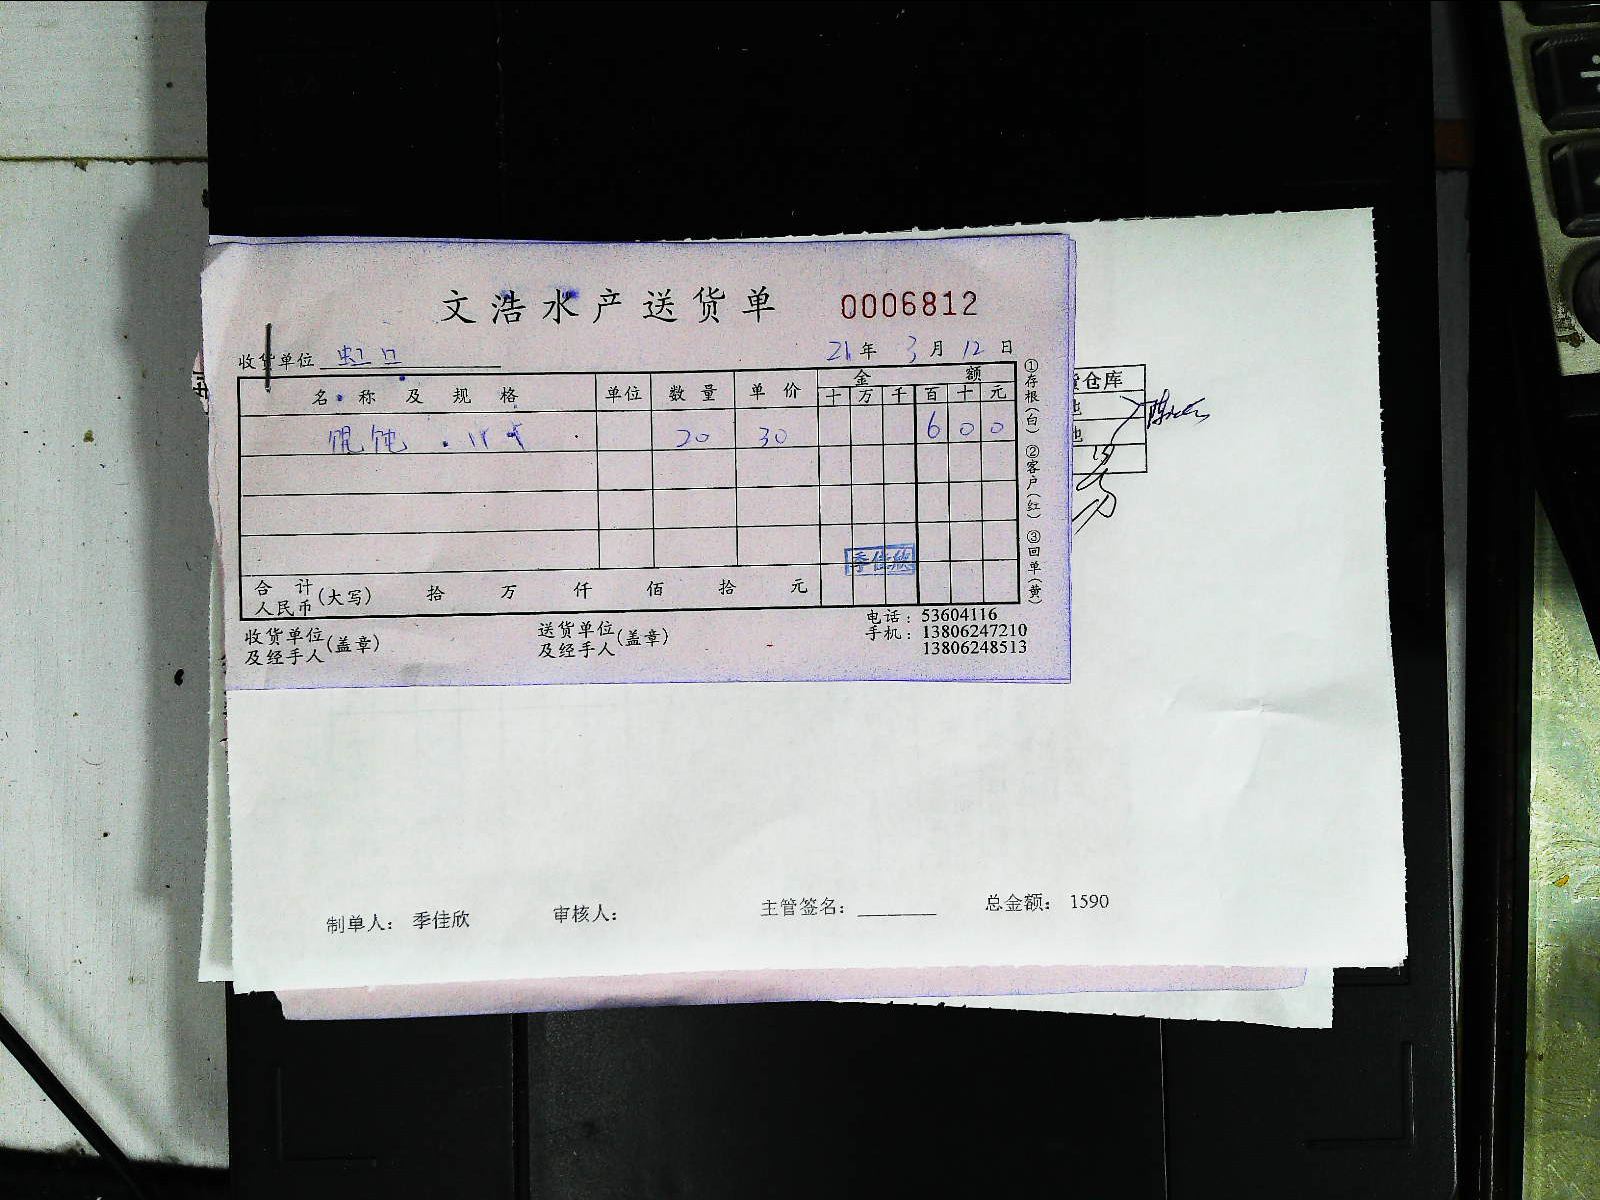 文浩水产送货单 0006812
收货单位 虹口 21年 3月 12日
名称及规格 单位 数量 单价 金额
十 万 千 百 十 元
馄饨 20 30 6 0 0
季佳欣
合计人民币(大写) 拾 万 仟 佰 拾 元
收货单位及经手人(盖章) 送货单位及经手人(盖章)
电话:53604116
手机:13806247210
13806248513
①存根(白) ②客户(红) ③回单(黄)
仓库
制单人: 季佳欣 审核人: 主管签名: 总金额: 1590